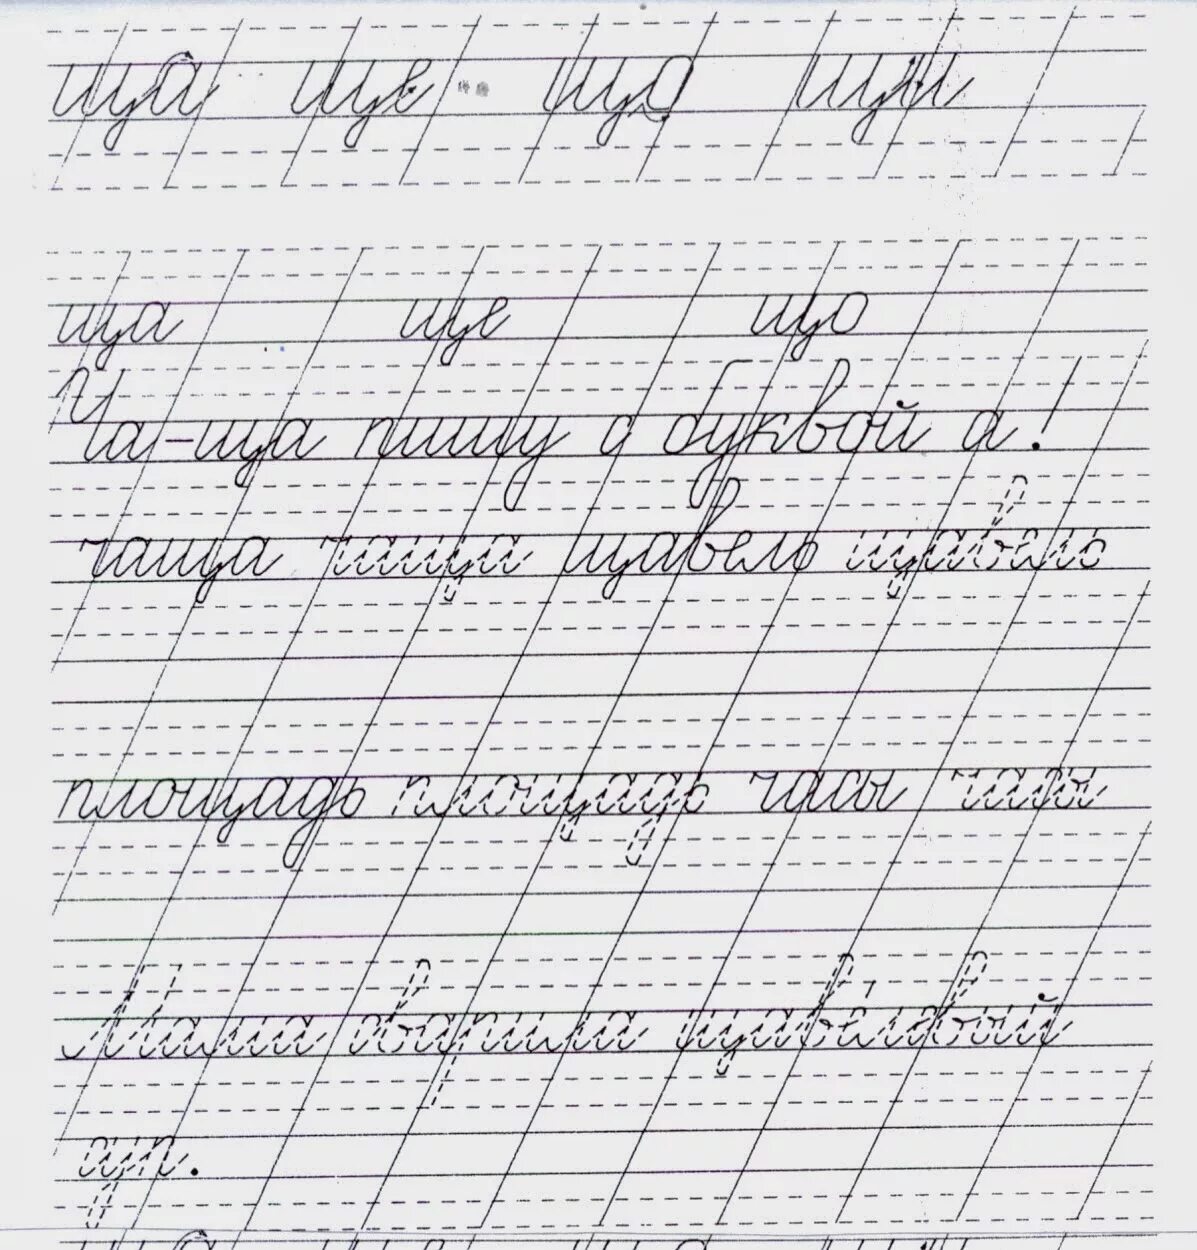 ща ще що щи
ща ще що
Ча-ща пишу с буквой а!
чаща чаща щавель щавель
площадь площадь часы часы
Мама варила щавелевый
щи.